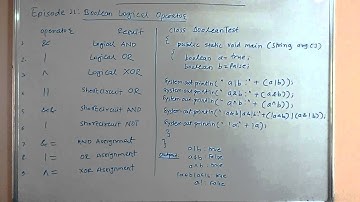 Episode 21: Boolean Logical Operators
operators Result
& Logical AND
| Logical OR
^ Logical XOR
|| Shortcircuit OR
&& Shortcircuit AND
! Shortcircuit NOT
&= AND Assignment
|= OR Assignment
^= XOR Assignment
class BooleanTest
{ public static void main (String args[])
{ boolean a=true;
boolean b=false;
System.out.println(" a|b :" + (a|b));
System.out.println(" a&b :" + (a&b));
System.out.println(" a^b :" + (a^b));
System.out.println(
System.out.println(" !a" + !a);
}
}
Output: a|b : true
a&b : False
a^b : true
a! : False